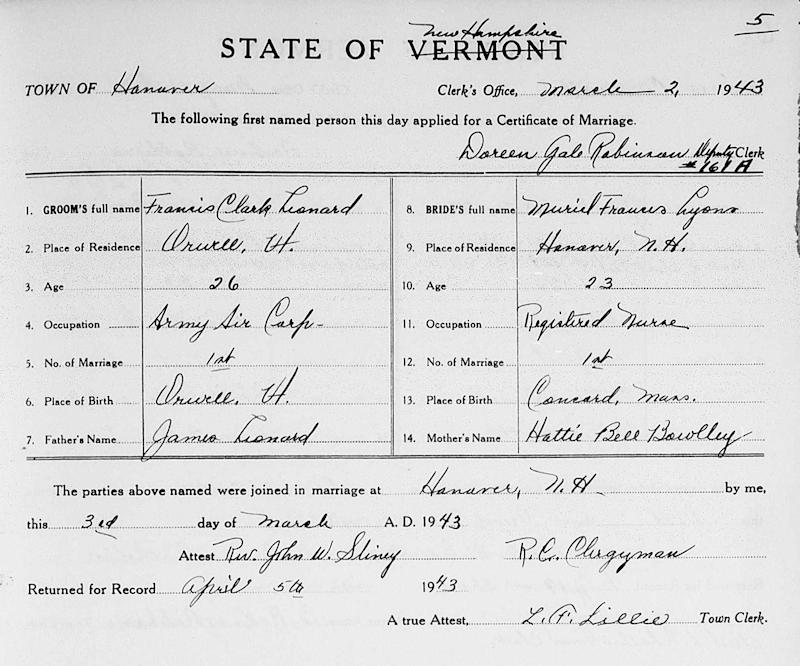 5
New Hampshire
STATE OF VERMONT
TOWN OF Hanover Clerk's Office, March 2, 1943
The following first named person this day applied for a Certificate of Marriage.
Doreen Gale Robinson Deputy Clerk
#161A
1. GROOM'S full name Francis Clark Leonard 8. BRIDE'S full name Muriel Frances Lyons
2. Place of Residence Orwell, Vt. 9. Place of Residence Hanover, N.H.
3. Age 26 10. Age 23
4. Occupation Army Air Corp- 11. Occupation Registered Nurse
5. No. of Marriage 1st 12. No. of Marriage 1st
6. Place of Birth Orwell, Vt. 13. Place of Birth Concord, Mass.
7. Father's Name James Leonard 14. Mother's Name Hattie Bell Bowlley
The parties above named were joined in marriage at Hanover, N.H. by me,
this 3rd day of March A. D. 1943
Attest Rev. John W. Sliney R.C. Clergyman
Returned for Record April 5th 1943
A true Attest, L. F. Lillie Town Clerk.